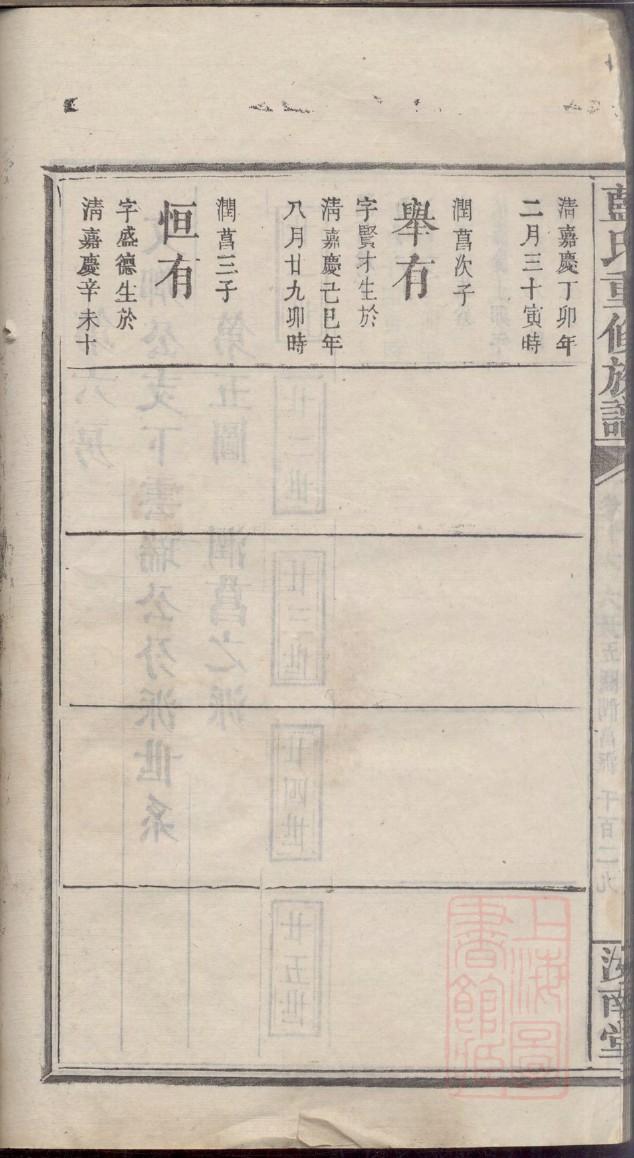 藍氏重修族譜
汝南堂
清嘉慶丁卯年
二月三十寅時
潤菖次子
舉有
字賢才生於
清嘉慶己巳年
八月廿九卯時
潤菖三子
恒有
字盛德生於
清嘉慶辛未十
上海圖
書館藏